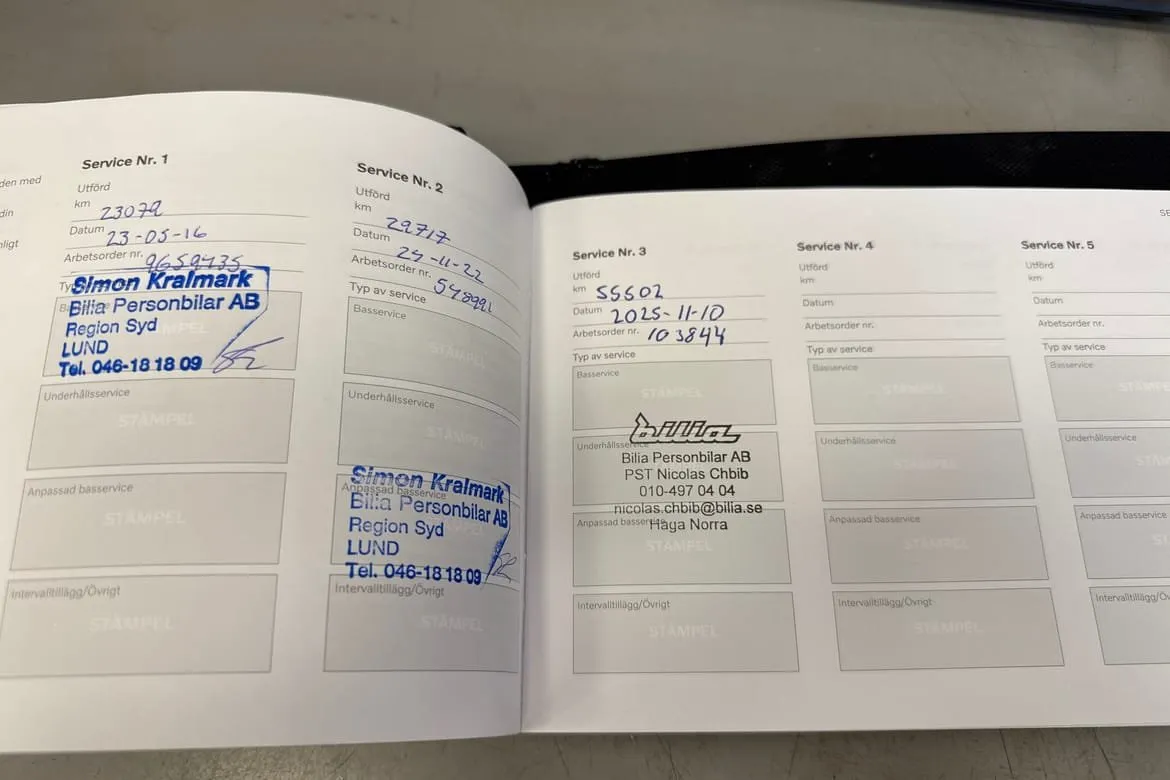 den med
din
nligt
Service Nr. 1
Utförd
km 23079
Datum 23-05-16
Arbetsorder nr. 9659435
Simon Kralmark
Bilia Personbilar AB
Region Syd
LUND
Tel. 046-18 18 09
Underhållsservice
STÄMPEL
Anpassad basservice
STÄMPEL
Intervalltillägg/Övrigt
STÄMPEL
Service Nr. 2
Utförd
km 29717
Datum 24-11-22
Arbetsorder nr. 548991
Typ av service
Basservice
STÄMPEL
Underhållsservice
STÄMPEL
Simon Kralmark
Anpassad basservice
Bilia Personbilar AB
Region Syd
LUND
Tel. 046-18 18 09
Intervalltillägg/Övrigt
STÄMPEL
Service Nr. 3
Utförd
km 55502
Datum 2025-11-10
Arbetsorder nr. 103844
Typ av service
Basservice
STÄMPEL
bilia
Underhållsservice
Bilia Personbilar AB
PST Nicolas Chbib
010-497 04 04
nicolas.chbib@bilia.se
Anpassad basservice
Haga Norra
STÄMPEL
Intervalltillägg/Övrigt
STÄMPEL
Service Nr. 4
Utförd
km
Datum
Arbetsorder nr.
Typ av service
Basservice
STÄMPEL
Underhållsservice
STÄMPEL
Anpassad basservice
STÄMPEL
Intervalltillägg/Övrigt
STÄMPEL
SE
Service Nr. 5
Utförd
km
Datum
Arbetsorder nr.
Typ av service
Basservice
STÄMPE
Underhållsservice
STÄMP
Anpassad basservice
ST
Intervalltillägg/Öv